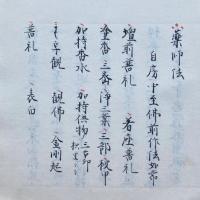 薬師法
自房中至佛前作法如常
壇前普礼 着座普礼
塗香 三密 浄三業 三部 被甲
加持香水 加持供物
観 観佛 金剛起
普礼 表白